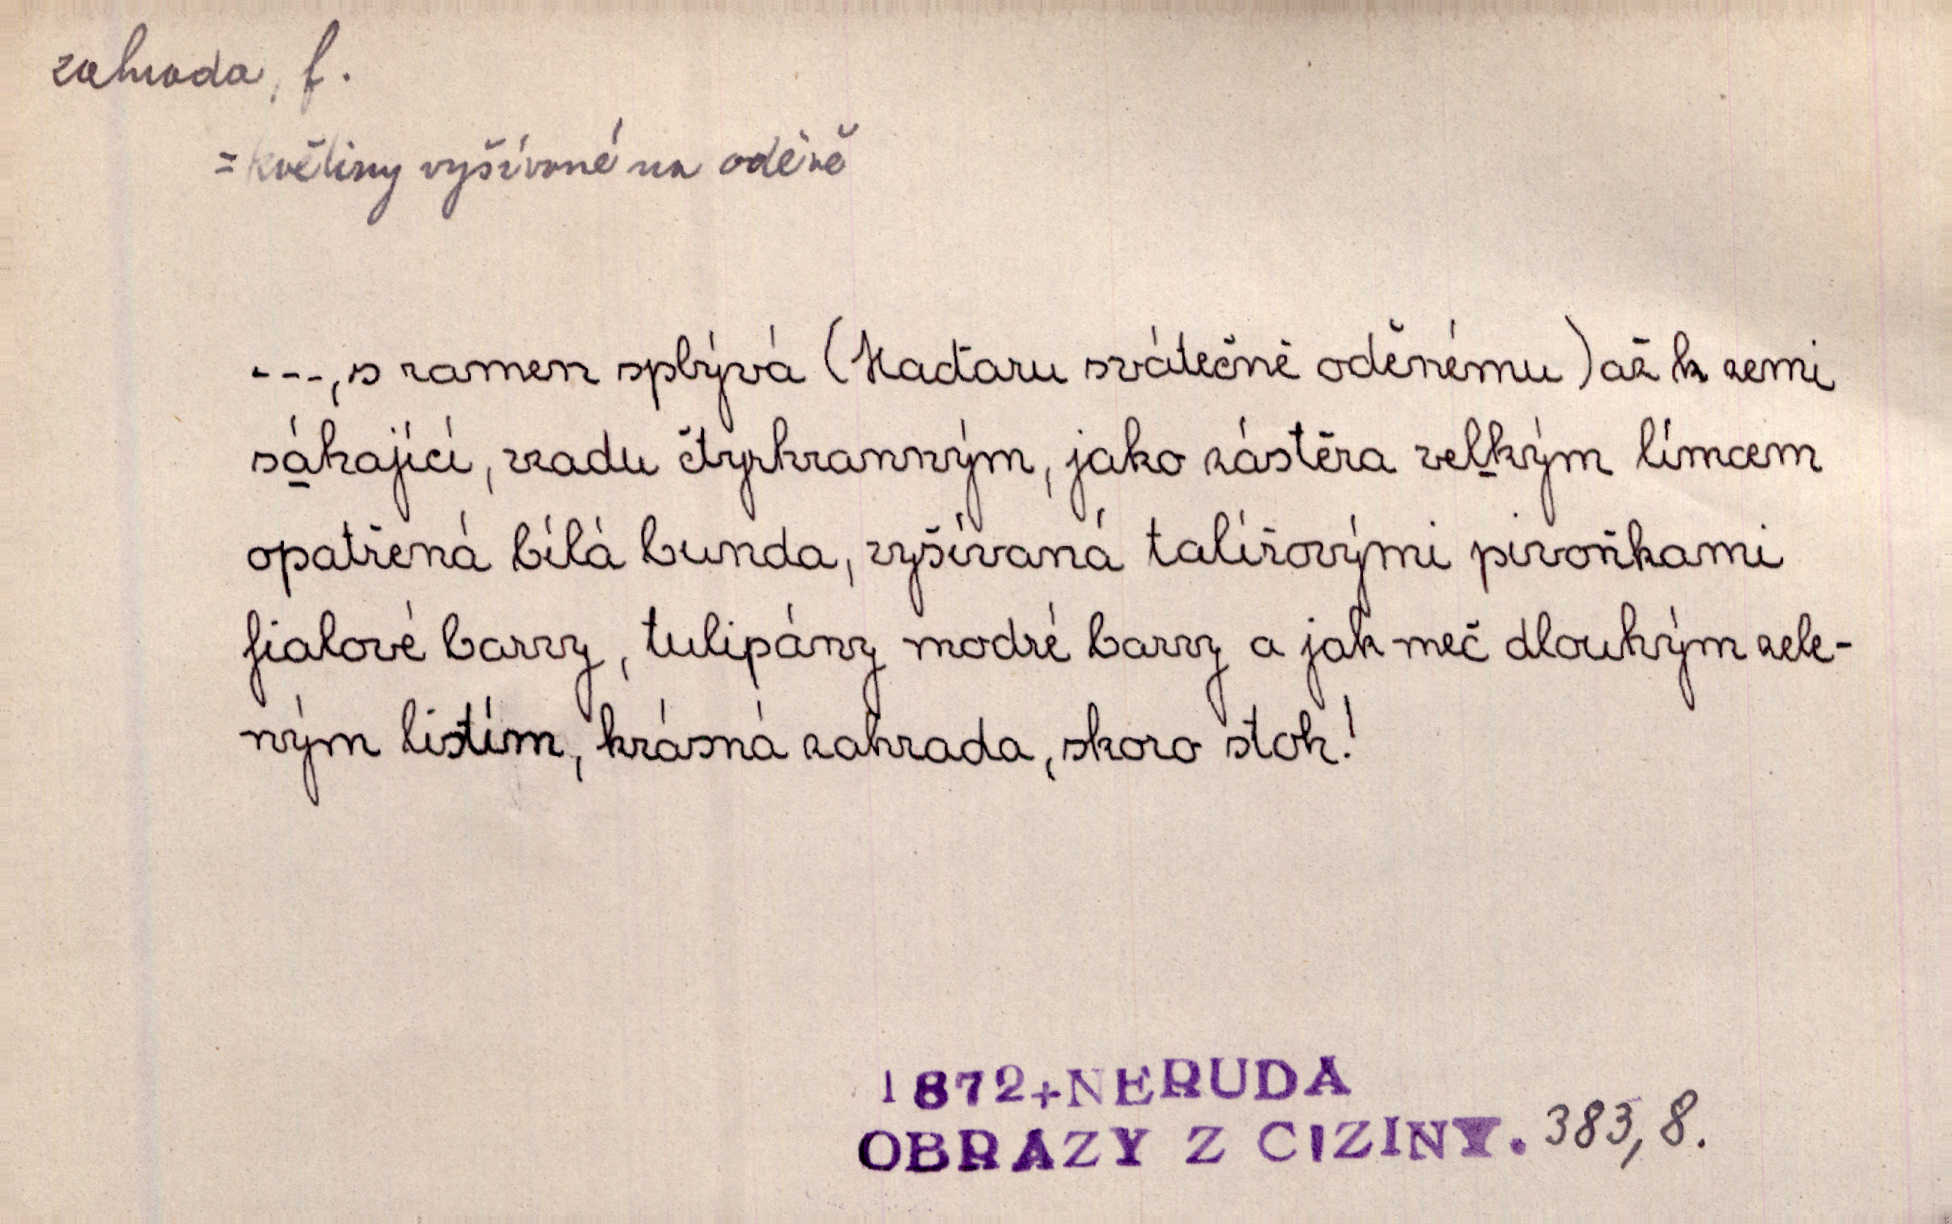 zahrada, f.
= květiny vyšívané na oděvě
---, s ramen splývá (Maďaru svátečně oděnému) až k zemi
sáhající, vzadu čtyrhranným, jako zástěra velkým límcem
opatřená bílá bunda, vyšívaná talířovými pivoňkami
fialové barvy, tulipány modré barvy a jak meč dlouhým zele-
ným listím, krásná zahrada, skoro stoh!
1872+NERUDA
OBRAZY Z CIZINY. 383, 8.